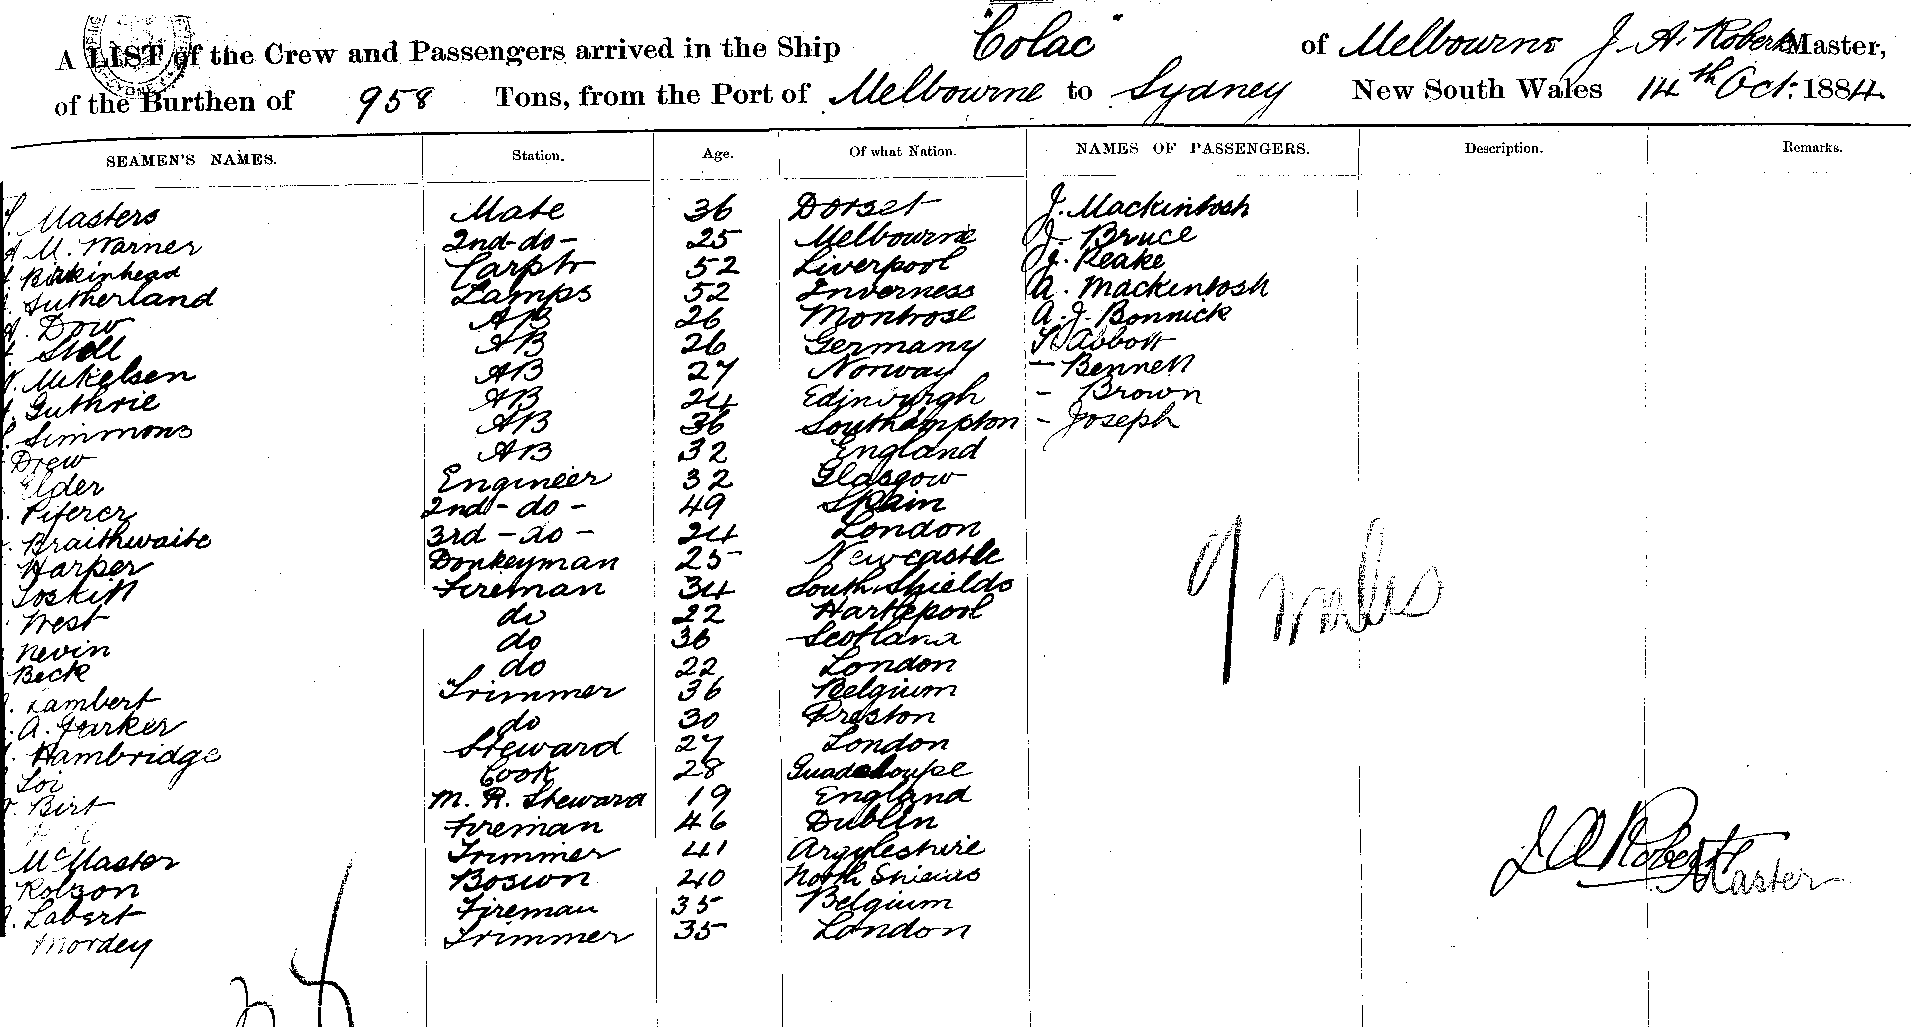 A LIST of the Crew and Passengers arrived in the Ship "Colac" of Melbourne J. A. Roberts Master,
of the Burthen of 958 Tons, from the Port of Melbourne to Sydney New South Wales 14th Oct. 1884
SEAMEN'S NAMES. Station. Age. Of what Nation. NAMES OF PASSENGERS. Description. Remarks.
Masters Mate 36 Dorset J. Mackintosh
M. Warner 2nd-do- 25 Melbourne J. Bruce
Birkinhead Carptr 52 Liverpool J. Reake
Sutherland Lamps 52 Inverness A. Mackintosh
Dow AB 26 Montrose A. J. Bonnick
Stoll AB 26 Germany Abbott
Mikelsen AB 27 Norway - Bennett
Guthrie AB 24 Edinburgh - Brown
Simmons AB 36 Southampton - Joseph
Drew AB 32 England
Elder Engineer 32 Glasgow
Piferer 2nd-do- 49 Spain
Braithwaite 3rd-do- 24 London
Harper Donkeyman 25 Newcastle
Loskill Fireman 34 South Shields
West do 22 Hartlepool
Nevin do 36 Scotland
Beck do 22 London
Lambert Trimmer 36 Belgium
A. Parker do 30 Preston
Hambridge Steward 27 London
Loi Cook 28 Guadeloupe
Birt M. R. Steward 19 England
Fireman 46 Dublin
McMaster Trimmer 41 Argyleshire
Robson Boswn 40 North Shields
Labert Fireman 35 Belgium
Mordey Trimmer 35 London
9 males
J A Roberts
Master